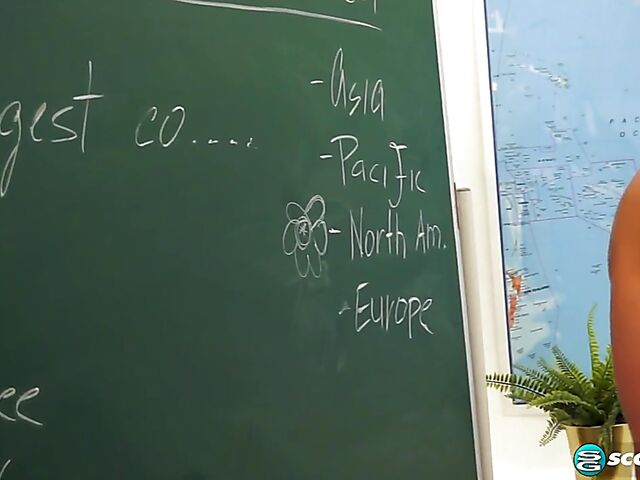 gest co.....
- Asia
- Pacific
- North Am.
- Europe
ee
PAC
OC
sco